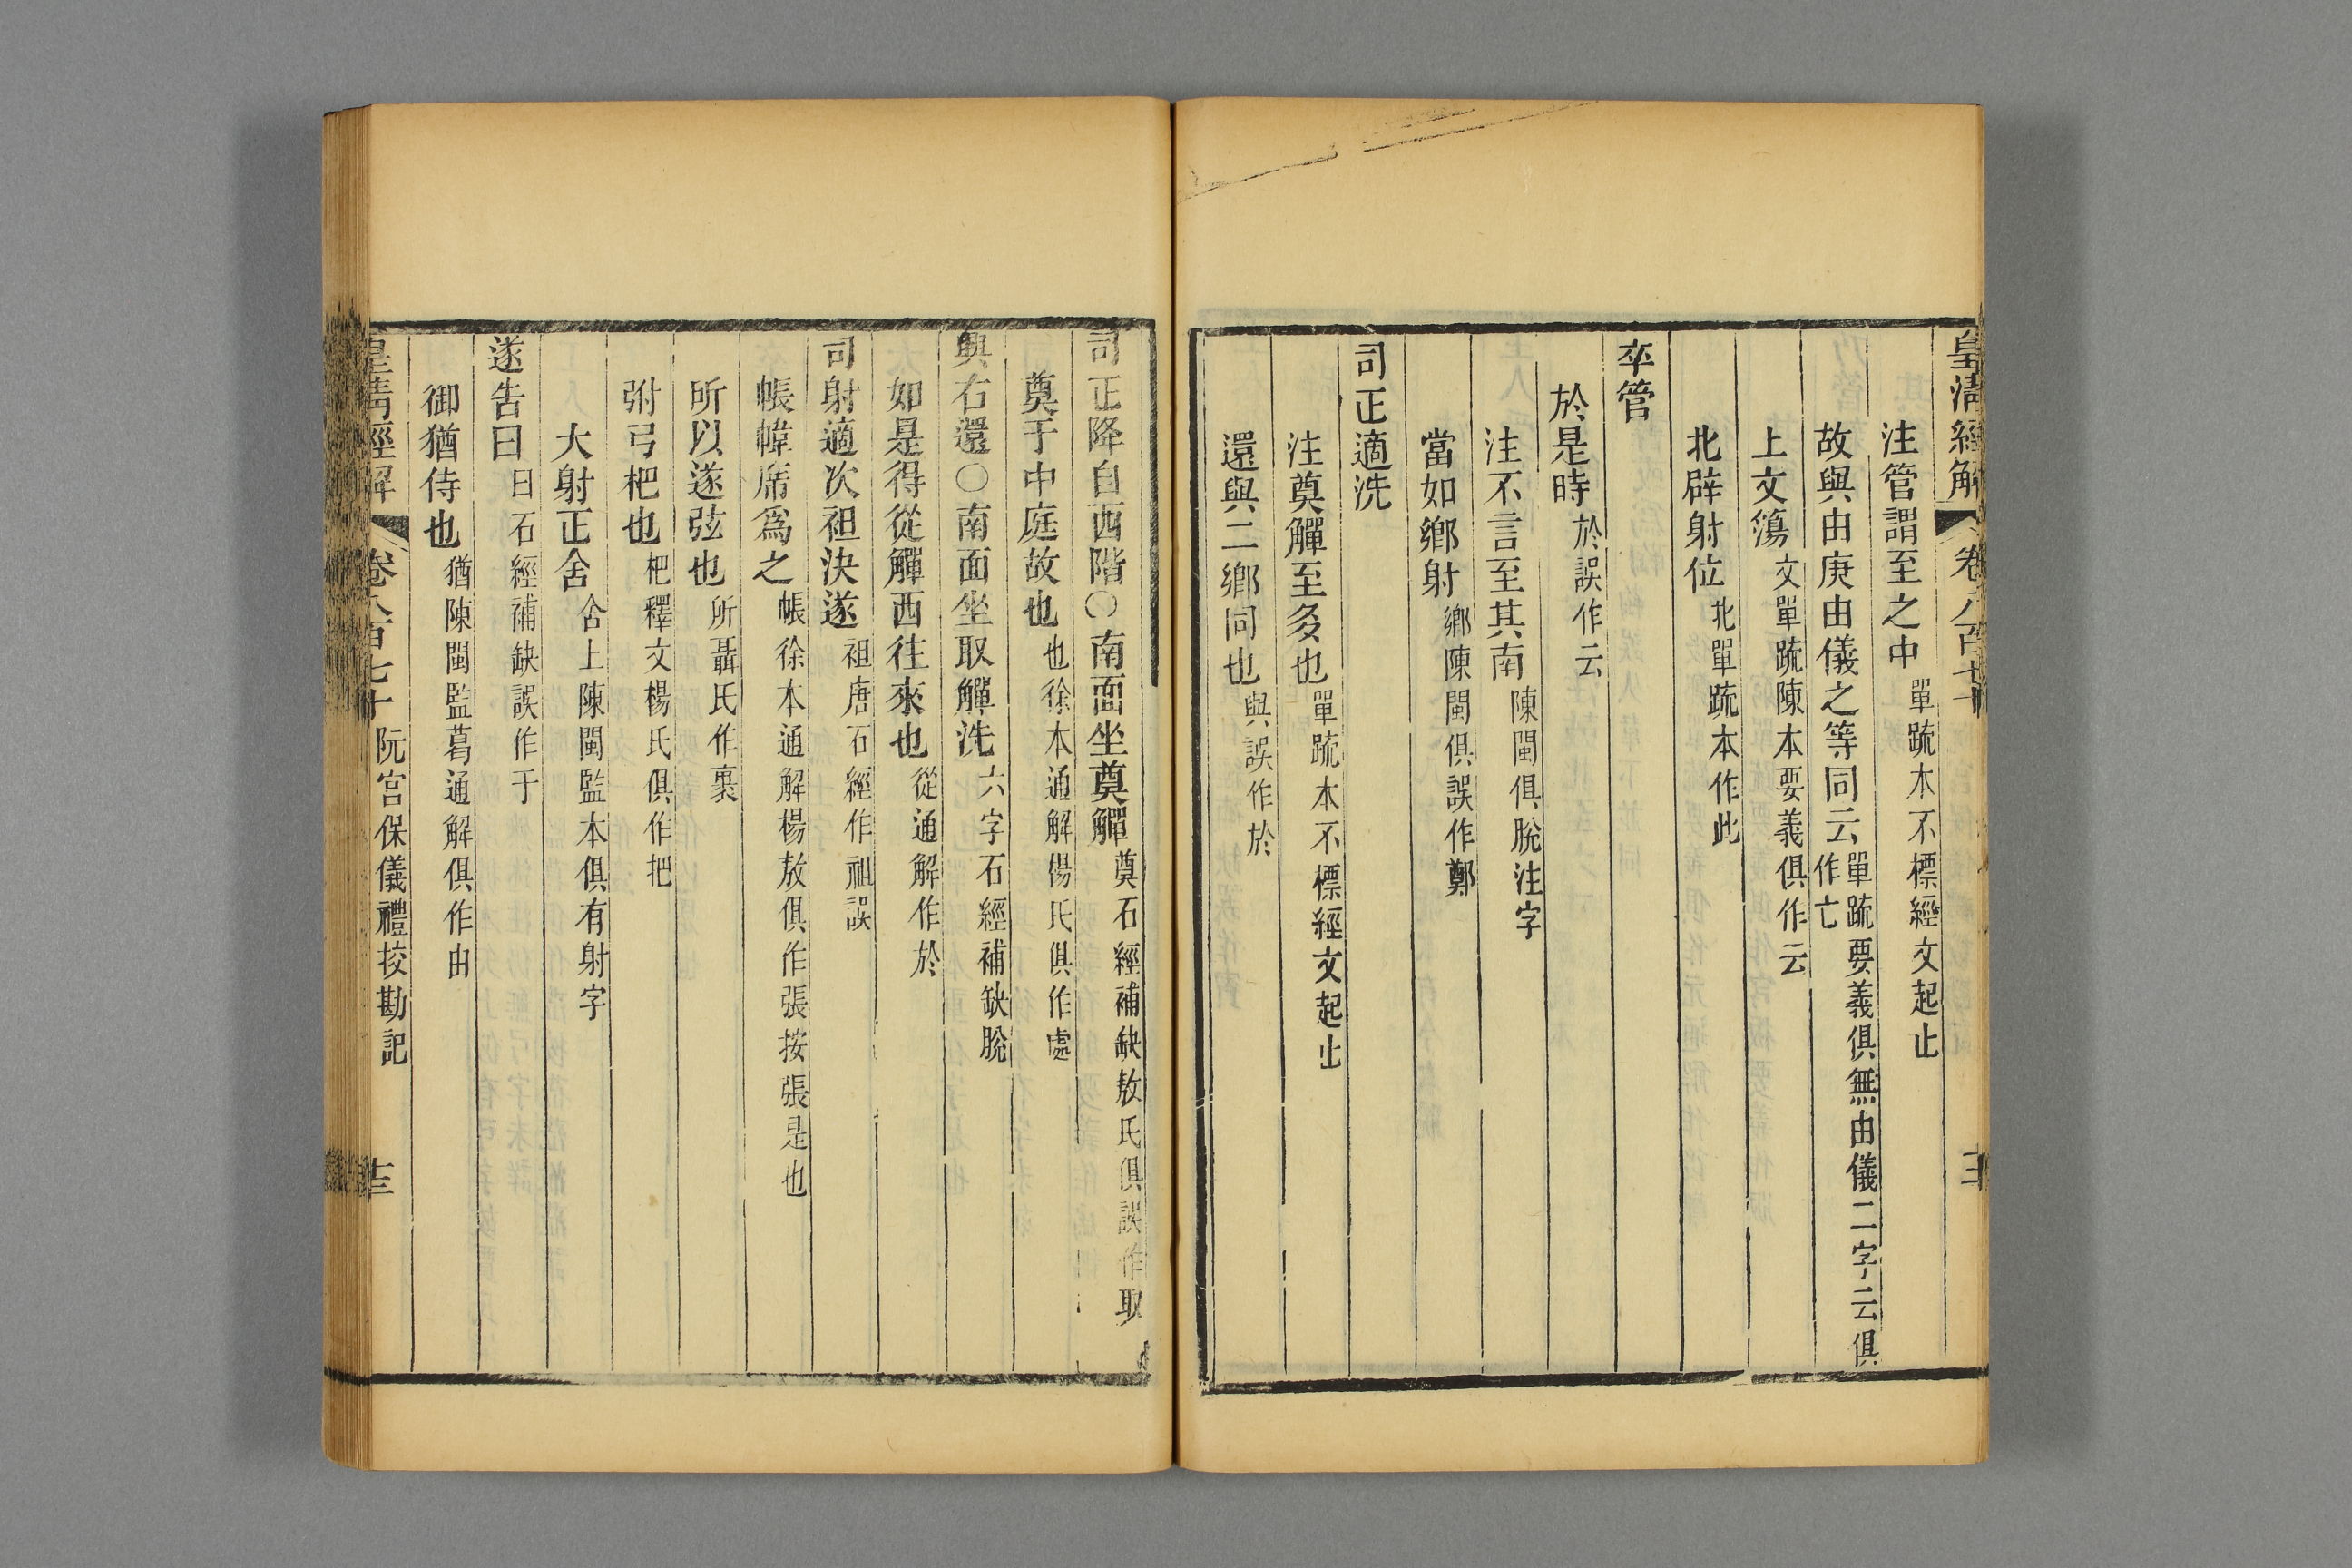 皇清經解 卷八百七十
注管謂至之中單疏本不標經文起止
故與由庚由儀之等同云單疏要義俱無由儀二字云俱作亡
上文簜文單疏陳本要義俱作云
北辟射位北單疏本作此
卒管
於是時於誤作云
注不言至其南陳閩俱脫注字
當如鄉射鄉陳閩俱誤作鄭
司正適洗
注奠觶至多也單疏本不標經文起止
還與二鄉同也與誤作於
司正降自西階○南面坐奠觶奠石經補缺敖氏俱誤作取
奠于中庭故也也徐本通解楊氏俱作處
興右還○南面坐取觶洗六字石經補缺脫
如是得從觶西往來也從通解作於
司射適次袒決遂袒唐石經作袓誤
帳幃席爲之帳徐本通解楊敖俱作張按張是也
所以遂弦也所聶氏作裹
弣弓杷也杷釋文楊氏俱作把
大射正舍舍上陳閩監本俱有射字
遂告曰曰石經補缺誤作于
御猶侍也猶陳閩監葛通解俱作由
皇清經解 卷八百七十 阮宮保儀禮挍勘記